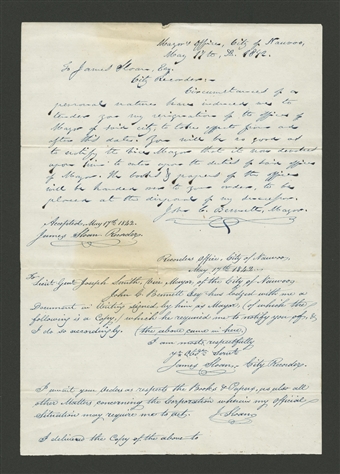 Mayor's Office, City of Nauvoo,
May 17th, A.D. 1842.
To James Sloan, Esq.
City Recorder:
Circumstances of a
personal nature have induced me to
tender you my resignation of the office of
Mayor of said city, to take effect from and
after this date. You will be so good as
to notify the Vice Mayor that it now devolves
upon him to enter upon the duties of said office
of Mayor. The books & papers of the office
will be handed over to your order, to be
placed at the disposal of my successor.
John C. Bennett, Mayor.
Accepted, May 17th 1842.
James Sloan, Recorder
Recorders Office, City of Nauvoo,
May 17th, 1842.
To
Lieut. Genl. Joseph Smith, Vice Mayor of the City of Nauvoo,
John C. Bennett Esqr. has lodged with me a
Document in Writing signed by him as Mayor, (of which the
following is a Copy,) which he required me to notify you of, &
I do so accordingly. (the above came in here)
I am most respectfully
yr. Obt. Servt.
James Sloan, City Recorder.
I await your Orders as respects the Books & Papers, as also all
other Matters concerning the Corporation wherein my Official
Situation may require me to act. J. Sloan
I delivered the Copy of the above to